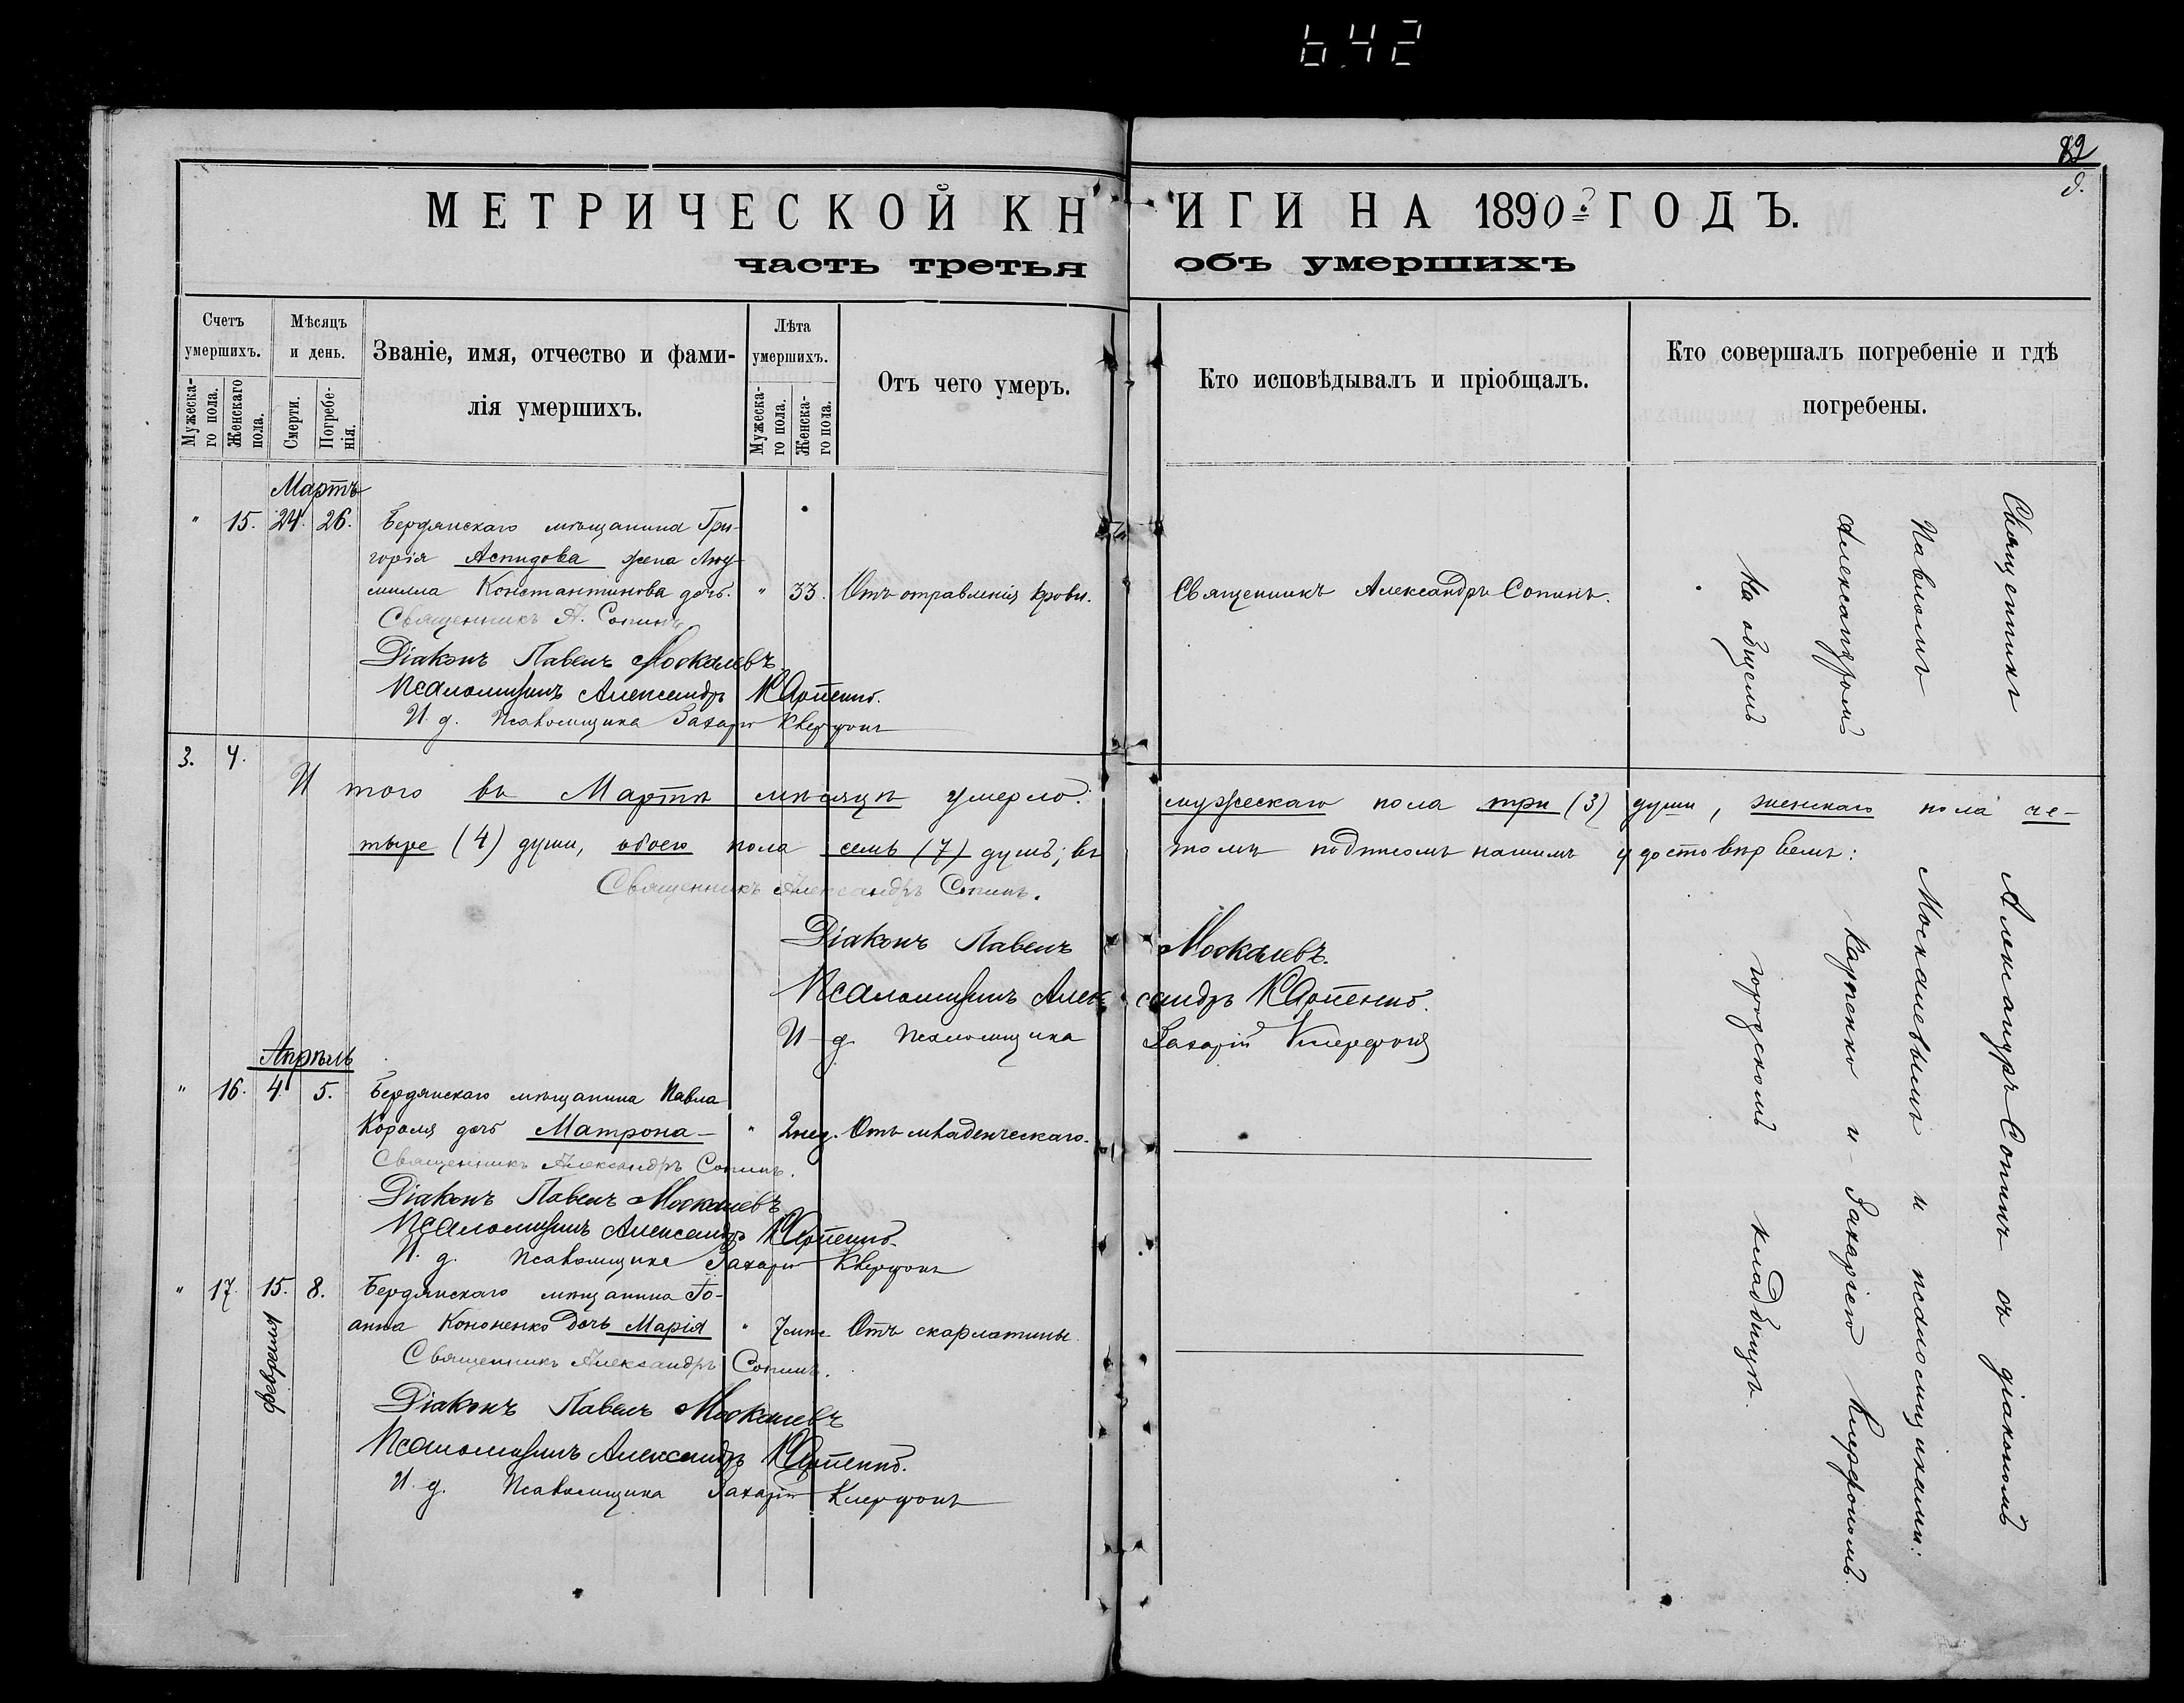 642
82
МЕТРИЧЕСКОЙ КНИГИ НА 1890 ГОДЪ.
часть третья объ умершихъ
Счетъ умершихъ.
Мужескаго пола.
Женскаго пола.
Мѣсяцъ и день.
Смерти.
Погребенія.
Званіе, имя, отчество и фамилія умершихъ.
Лѣта умершихъ.
Мужескаго пола.
Женскаго пола.
Отъ чего умеръ.
Кто исповѣдывалъ и пріобщалъ.
Кто совершалъ погребеніе и гдѣ погребены.
Мартъ
" 15. 24. 26. Бердянскаго мѣщанина Гри-
горія Аспидова жена Люд-
милла Константинова дочь. " 33. Отъ отравленія крови. Священникъ Александръ Сопинъ.
Священникъ А. Сопинъ
Діаконъ Павелъ Москалевъ
Псаломщикъ Александръ Карпенко.
И. д. Псаломщика Захарій Ксерфонъ
3. 4.
И того въ Мартѣ мѣсяцѣ умерло: мужескаго пола три (3) души, женскаго пола че-
тыре (4) души, обоего пола семь (7) душъ; въ томъ подписомъ нашимъ удостовѣряемъ:
Священникъ Александръ Сопинъ.
Діаконъ Павелъ Москалевъ.
Псаломщикъ Александръ Карпенко.
И. д. Псаломщика Захарій
Апрѣль
" 16. 4. 5. Бердянскаго мѣщанина Павла
Короля дочь Матрона " 2 нед. Отъ младенческаго.
Священникъ Александръ Сопинъ.
Діаконъ Павелъ Москалевъ
Псаломщикъ Александръ Карпенко.
И. д. Псаломщика Захарій
" 17. 15. 8. Бердянскаго мѣщанина Іо-
февраля
анна Кононенко дочь Марія " 7 мѣс. Отъ скарлатины
Священникъ Александръ Сопинъ.
Діаконъ Павелъ Москалевъ
Псаломщикъ Александръ Карпенко.
И. д. Псаломщика Захарій
Священникъ Александръ Сопинъ съ діакономъ
Павломъ Москалевымъ и псаломщиками:
Александромъ Карпенко и Захаріею
На общемъ городскомъ кладбищѣ.